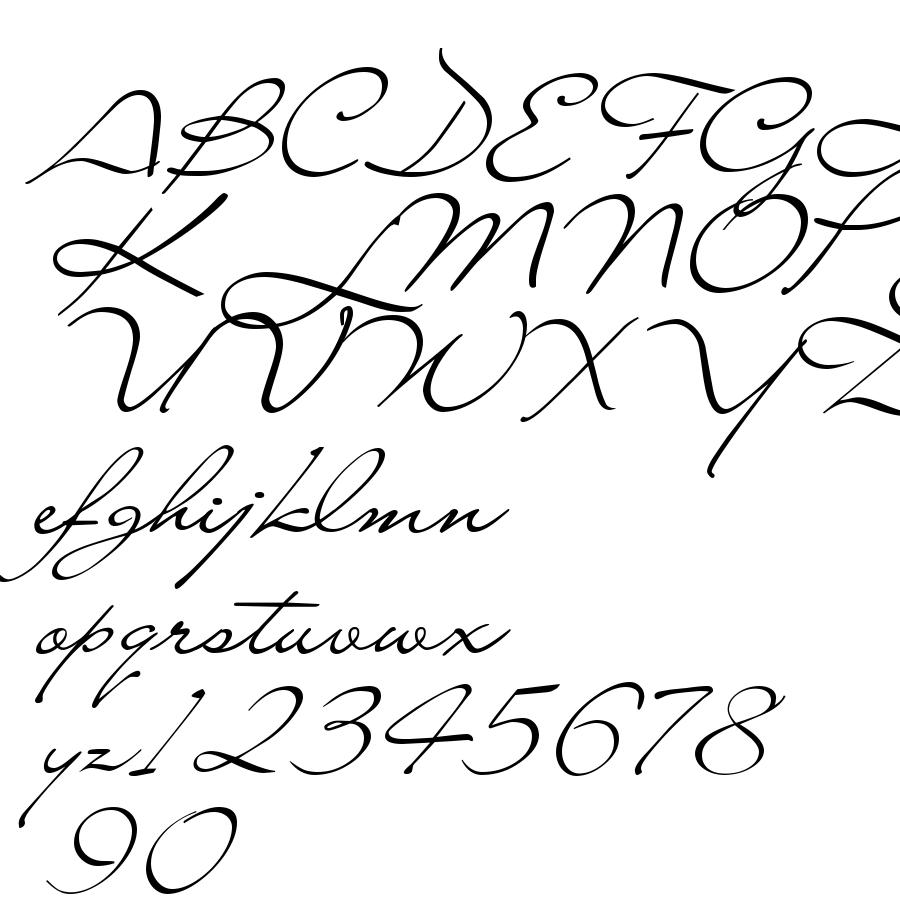 ABCDEFG
KLMNOP
UVWXYZ
efghijklmn
opqrstuvwx
yz12345678
90